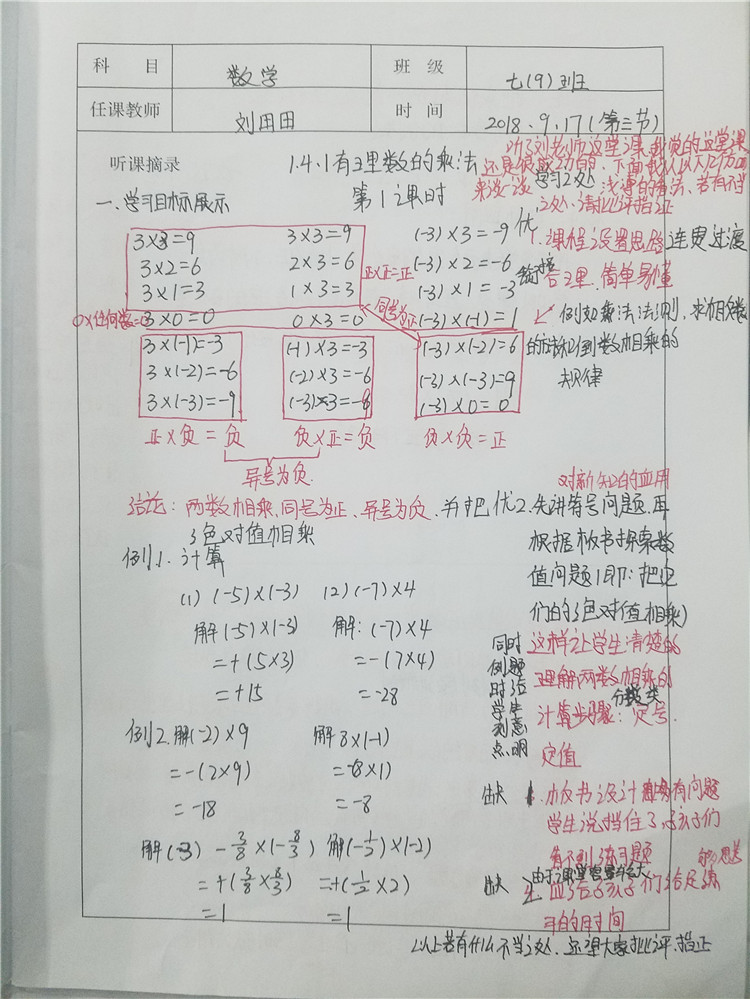 科 目 数学 班 级 七(9)班
任课教师 刘田田 时 间 2018、9、17(第三节)
听课摘录 1.4.1有理数的乘法
第1课时
一、学习目标展示
听了刘老师这堂课,我觉的这堂课
还是很成功的、下面我认从几方面
来谈一谈学习之处 浅薄的看法、若有不当
之处、请批评指正
3×3=9 3×3=9 (-3)×3=-9
3×2=6 2×3=6 正×正=正 (-3)×2=-6
3×1=3 1×3=3 (-3)×1=-3
0×任何数= 3×0=0 0×3=0 同号为正 (-3)×(-1)=1
3×(-1)=-3 (-1)×3=-3 (-3)×(-2)=6
3×(-2)=-6 (-2)×3=-6 (-3)×(-3)=9
3×(-3)=-9 (-3)×3=-9 (-3)×0=0
正×负=负 负×正=负 负×负=正
异号为负
优1.课程设置思路连贯过渡
衔接合理、简单易懂
例如乘法法则,求相反数
的 得到数相乘的
规律
结论:两数相乘、同号为正、异号为负、并把
绝对值相乘
对新知的应用
优2.先讲符号问题、再
根据板书探索数
值问题(即:把它
们的绝对值相乘)
这样让学生清楚的
理解两数相乘的
计算步骤:分类
定号、
定值
同时
例题
时给
学生
刻意
点明
例1、计算
(1) (-5)×(-3) (2)(-7)×4
解(-5)×(-3) 解:(-7)×4
=+(5×3) =-(7×4)
=+15 =-28
例2.解(-2)×9 解8×(-1)
=-(2×9) =-(8×1)
=-18 =-8
解(3) -3/8×(-8/3) 解(-1/2)×(-2)
=+(3/8×8/3) =+(1/2×2)
=1 =1
缺 1.板书设计 有问题
学生说挡住了、孩子们
看不到练习题
缺 2.由于课堂容量较大
应给孩子们给足练 的思考
习的时间
以上若有什么不当之处、还望大家批评、指正